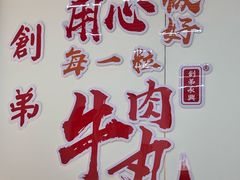 用心做好
每一粒
牛肉丸
創弟
創弟永興
®